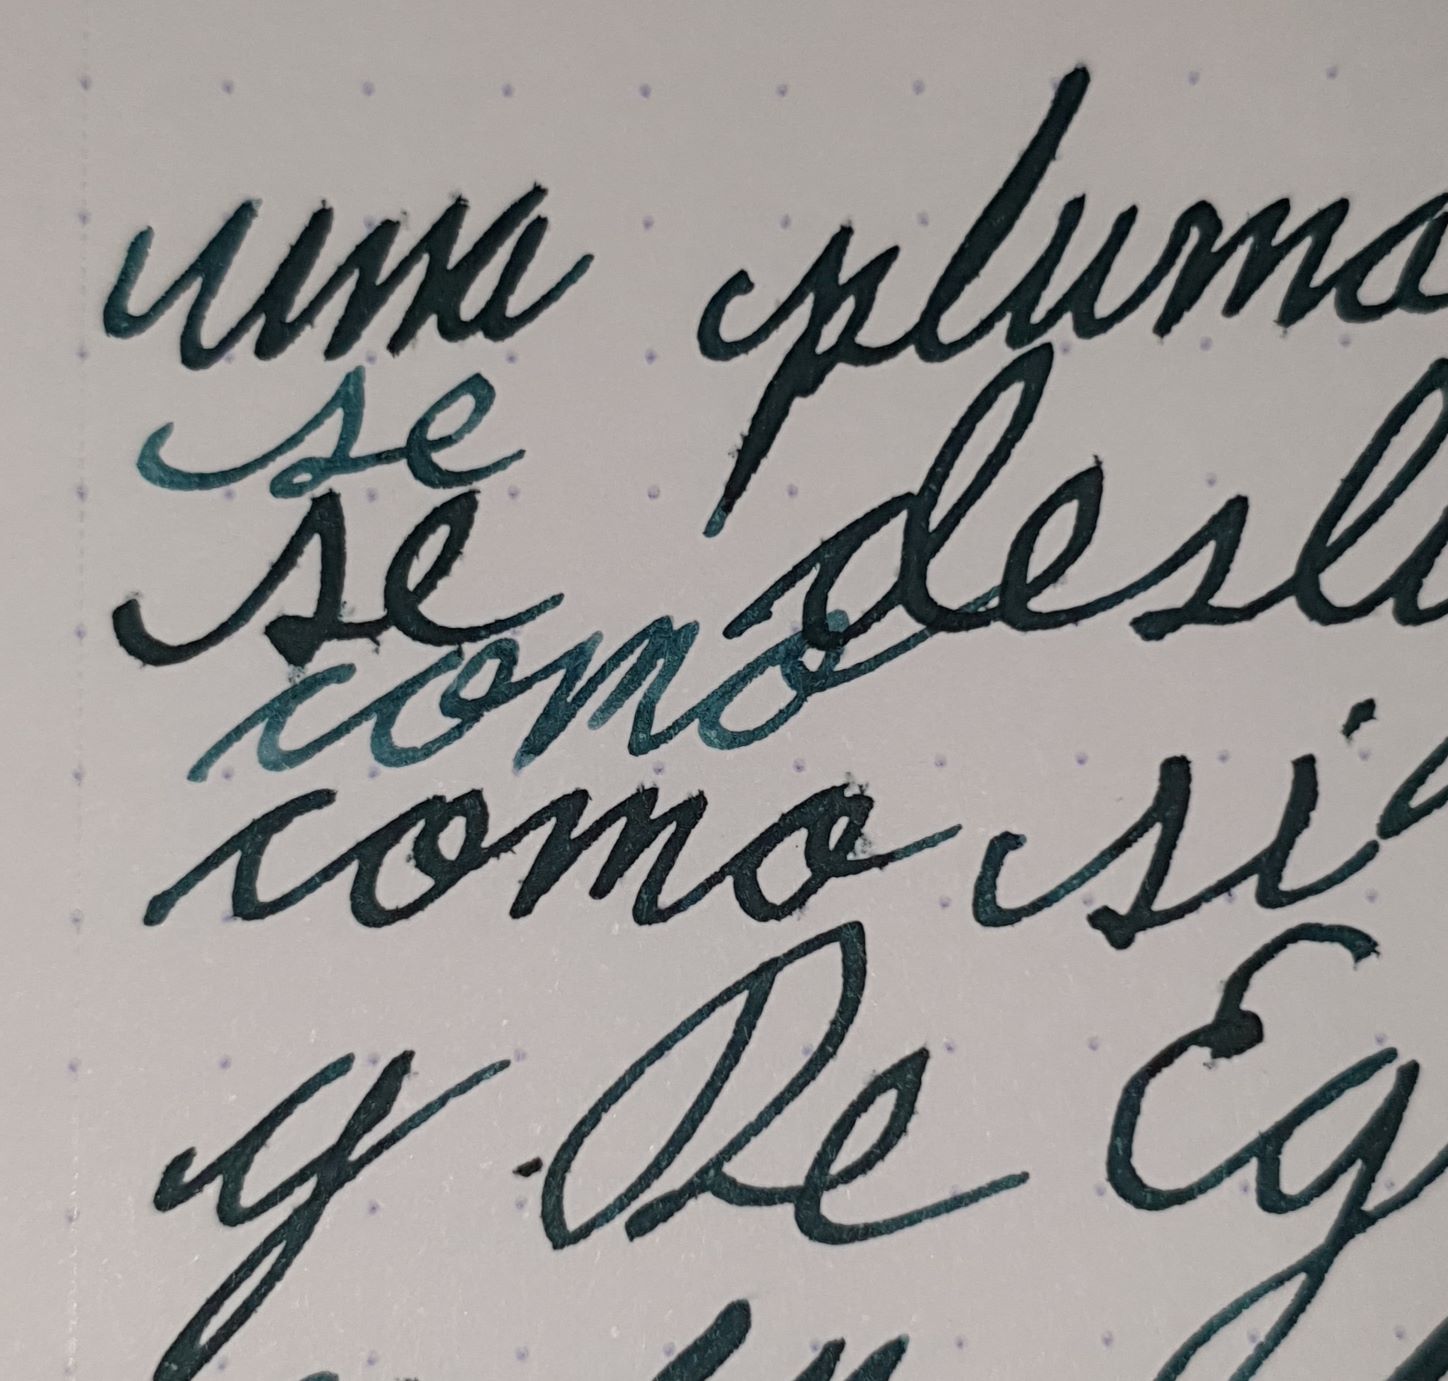 una pluma
se
se desli
como
como si
y De Eg